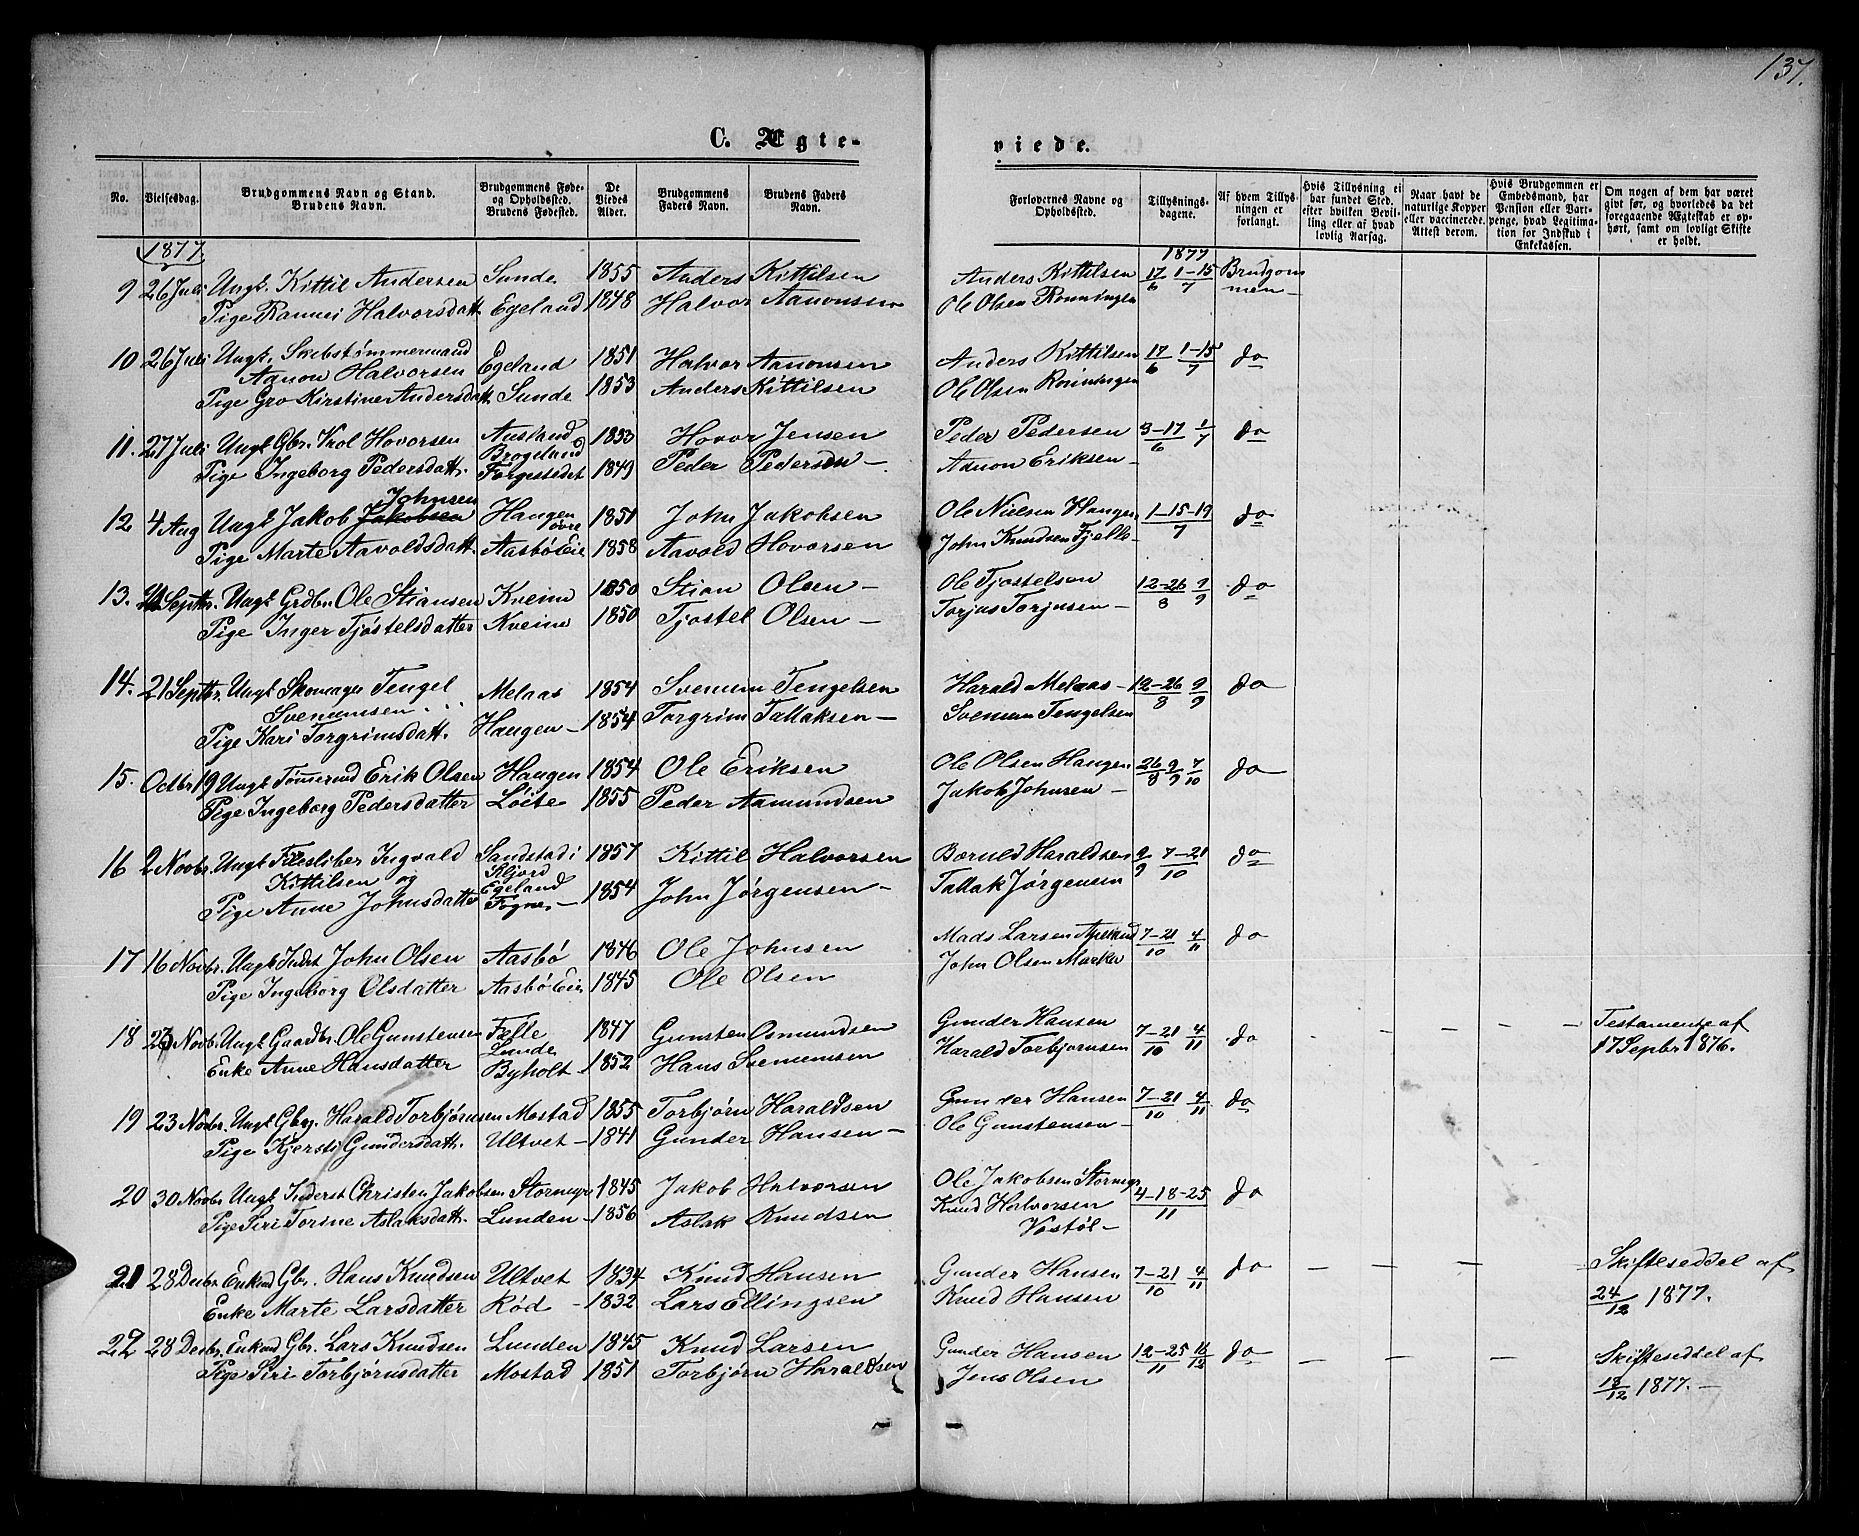 137.
C. Ægteviede.
No. Vielsesdag. Brudgommens Navn og Stand. Brudens Navn. Brudgommens Føde- og Opholdssted. Brudens Fødested. De Viedes Alder. Brudgommens Faders Navn. Brudens Faders Navn. Forlovernes Navne og Opholdssted. Tillysningsdagene. Af hvem Tillysningen er forlangt. Hvis Tillysning ei har fundet Sted, efter hvilken Bevilling eller af hvad lovlig Aarsag. Naar havt de naturlige Kopper eller vaccinerede. Attest derom. Hvis Brudgommen er Embedsmand, har Pension eller Vartpenge, hvad Legitimation for Indskud i Enkekassen. Om nogen af dem har været givt før, og hvorledes da det foregaaende Ægteskab er ophørt, samt om lovligt Skifte er holdt.
1877 1877
9 26 Juli Ungk. Kittil Andersen Sunde 1855 Anders Kittilsen Anders Kittilsen 17/6 1-15/7 Brudgom
Pige Rannei Halvorsdatt. Egeland 1848 Halvor Aanonsen Ole Olsen Rønningen men
10 26 Juli Ungk. Skibstømmermand
Aanon Halvorsen Egeland 1851 Halvor Aanonsen Anders Kittilsen 17/6 1-15/7 do
Pige Gro Kirstine Andersdatt. Sunde 1853 Anders Kittilsen Ole Olsen Rønningen
11. 27 Juli Ungk Gbr. Vrol Hovorsen Ausland Brogeland 1853 Hovor Jensen Peder Pedersen 3-17/6 1/7 do
Pige Ingeborg Pedersdatt. 1849 Peder Pedersen - Aanon Eriksen -
12 4 Aug Ungk Jakob Jakobsen Johnsen Haugen øvre 1851 John Jakobsen Ole Nielsen Haugen 1-15-19/7 do
Pige Marte Aavoldsdatt. Aasbø Eie 1858 Aavold Hovorsen John Knudsen Fjelle -
13. Septbr. Ungk Grdbr. Ole Stiansen Kveim 1850 Stian Olsen - Ole Tjøstelsen 12-26/8 9/9 do
Pige Inger Tjøstelsdatter Kveim 1850 Tjøstel Olsen - Torjus Torjusen -
14. 21 Septbr. Ungk Skomager Tengel
Svenumsen Melaas 1854 Svenum Tengelsen Harald Melaas - 12-26/8 9/9 do
Pige Kari Torgrimsdatt. Haugen - 1854 Torgrim Tallaksen - Svenum Tengelsen
15. Octbr 19 Ungk Tømmermd Erik Olsen Haugen 1854 Ole Eriksen Ole Olsen Haugen 26/8 9/9 7/10 do
Pige Ingeborg Pedersdatter Løite 1855 Peder Aamundsen Jakob Johnsen -
16 2 Novbr. Ungk Ingvald Sandstad i 1857 Kittil Halvorsen Bærulf Haraldsen 9/9 7-21/10 do
Kittilsen og Egeland
Pige Anne Johnsdatter Fogne. - 1854 John Jørgensen - Tallak Jørgensen
17 16 Novbr. Ungk Inderst John Olsen Aasbø 1846 Ole Johnsen Mads Larsen Apeland 7-21/10 4/11 do
Pige Ingeborg Olsdatter Aasbø Eie 1845 Ole Olsen John Olsen Marka
18 23 Novb. Ungk Gaardbr. Ole Gunstensen Fælle 1847 Gunsten Osmundsen Gunder Hansen 7-21/10 4/11 do - - - - Testamente af
Enke Anne Hansdatter Lunde Byholt - 1852 Hans Svenumsen Harald Torbjørnsen 17 Septbr 1876.
19 23 Novbr. Ungk Gbr. Harald Torbjørnsen Mostad 1855 Torbjørn Haraldsen Gunder Hansen 7-21/10 4/11 do
Pige Kjersti Gundersdatt. Ultvet - 1841 Gunder Hansen - Ole Gunstensen -
20 30 Novbr Ungk Inderst Christen Jakobsen Stormyr 1845 Jakob Halvorsen Ole Jakobsen Stormyr 4-18-25/11 do
Pige Siri Torine Aslaksdatt. Lunden - 1856 Aslak Knudsen Knud Halvorsen
Vostøl -
21 28 Decbr. Enkmd Gbr. Hans Knudsen Ultvet 1834 Knud Hansen Gunder Hansen 7-21/10 4/11 do - - - Skifteseddel af
Enke Marte Larsdatter Rød - 1832 Lars Ellingsen Knud Hansen 24/12 1877.
22 28 Decbr. Enkmd Gbr. Lars Knudsen Lunden 1845 Knud Larsen Gunder Hansen 12-25/11 16/12 do - - - Skifteseddel af
Pige Siri Torbjørnsdatter Mostad 1851 Torbjørn Haraldsen Jens Olsen 18/12 1877. -